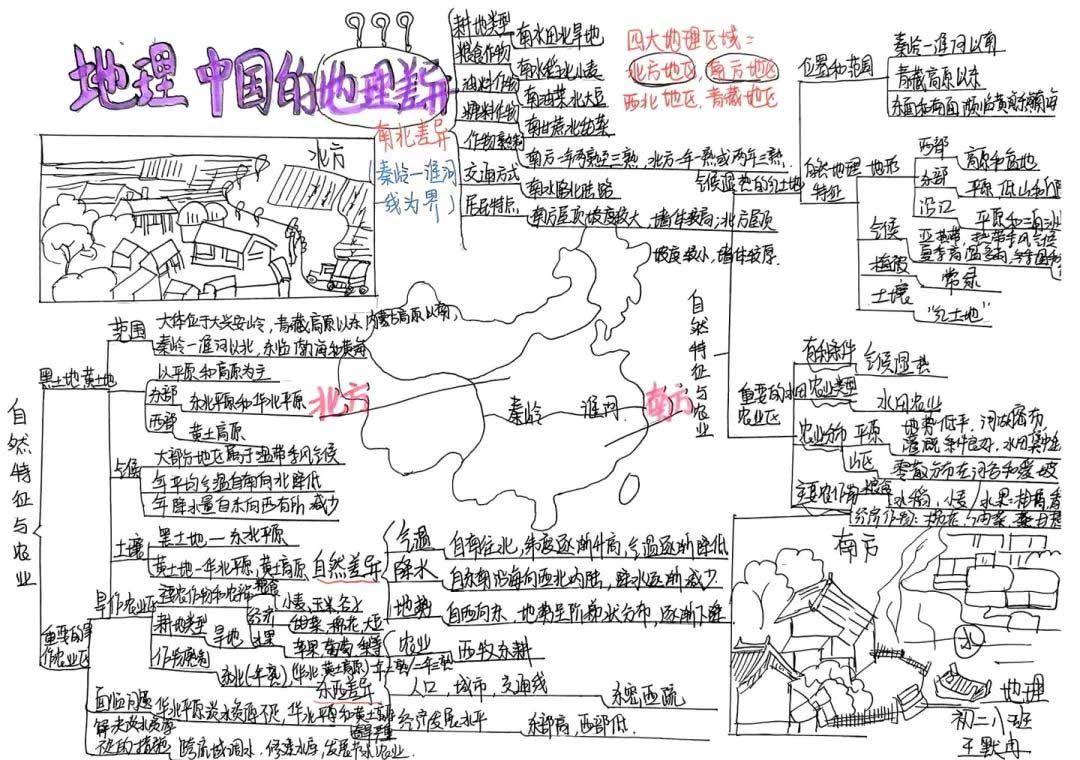 地理 中国的地理差异
南北差异
(秦岭一淮河
线为界)
耕地类型
南水田北旱地
粮食作物
南水稻北小麦
油料作物
南油菜北大豆
糖料作物
南甘蔗北甜菜
作物熟制
南方一年两熟至三熟,北方一年一熟或两年三熟.
交通方式
南水路北陆路
居民特点
南方屋顶坡度较大,墙体较高;北方屋顶
坡度较小,墙体较厚.
四大地理区域:
北方地区,南方地区
西北地区,青藏地区
气候湿热的红土地
位置和范围
秦岭一淮河以南
青藏高原以东
东面和南面濒临黄东南海
自然地理
特征
地形
西部
高原和盆地
东部
平原
沿江
平原和三角洲
气候
亚热带,热带季风气候
植被
常绿
土壤
“红土地”
北方
自然特征与农业
黑土地黄土地
范围
大体位于大兴安岭,青藏高原以东内蒙古高原以南,
秦岭一淮河以北,东临渤海和黄海
以平原和高原为主
东部
东北平原和华北平原
西部
黄土高原
气候
大部分地区属于温带季风气候
年平均气温自南向北降低
年降水量自东向西有所减少
土壤
黑土地一东北平原
黄土地-华北平原,黄土高原
重要的旱
作农业区
旱作农业区
粮食
小麦、玉米、谷子
经济
甜菜、棉花、大豆
水果
苹果 葡萄 梨等
耕地类型
旱地
作物熟制
东北(一年一熟)
面临问题
解决淡水资源
不足的措施
跨流域调水,修建水库,发展节水农业.
北方
秦岭 淮河
南方
自然特征与农业
重要的水田
农业区
有利条件
气候湿热
农业类型
水田农业
农业分布
平原
地势低平,河湖密布
灌溉条件良好,水田集中
山区
零散分布在河谷和缓坡
主要农作物
粮食
水稻,小麦
水果:柑橘,香
经济作物:
自然差异
气温
自南往北,纬度逐渐升高,气温逐渐降低
降水
自东南沿海向西北内陆,降水逐渐减少.
地势
自西向东、地势呈阶梯状分布,逐渐下降
东西差异
农业
西牧东耕
人口,城市,交通线
东密西疏
经济发展水平
东部高,西部低.
南方
水
地理
初二八班